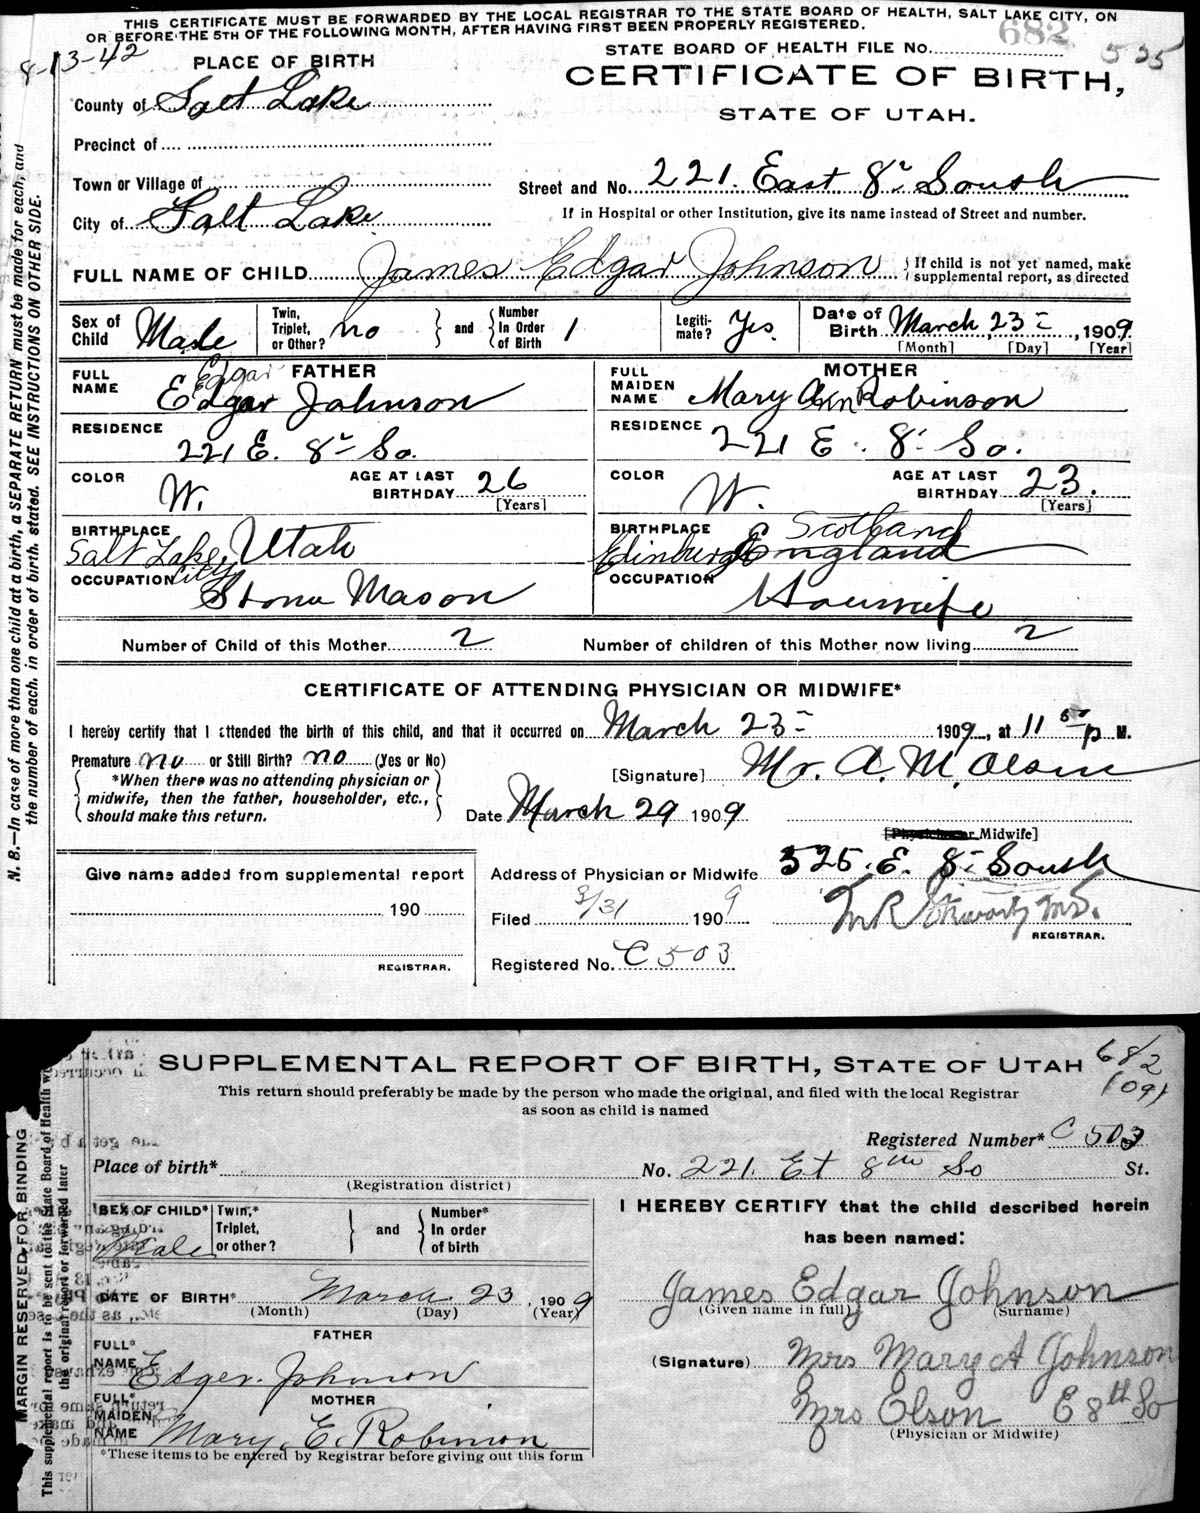 THIS CERTIFICATE MUST BE FORWARDED BY THE LOCAL REGISTRAR TO THE STATE BOARD OF HEALTH, SALT LAKE CITY, ON
OR BEFORE THE 5TH OF THE FOLLOWING MONTH, AFTER HAVING FIRST BEEN PROPERLY REGISTERED.
8-13-42
STATE BOARD OF HEALTH FILE No. 682 525
PLACE OF BIRTH
CERTIFICATE OF BIRTH,
STATE OF UTAH.
County of Salt Lake
Precinct of
Town or Village of
Street and No. 221. East 8" South
City of Salt Lake
If in Hospital or other Institution, give its name instead of Street and number.
FULL NAME OF CHILD James Edgar Johnson { If child is not yet named, make supplemental report, as directed
Sex of Child Male
Twin, Triplet, or Other? no
and
Number In Order of Birth 1
Legiti-mate? Yes.
Date of Birth March 23 =, 1909.
[Month] [Day] [Year]
FATHER
FULL NAME Edgar Edgar Johnson
MOTHER
FULL MAIDEN NAME Mary Ann Robinson
RESIDENCE 221 E. 8" So.
RESIDENCE 221 E. 8" So.
COLOR W.
AGE AT LAST BIRTHDAY 26
[Years]
COLOR W.
AGE AT LAST BIRTHDAY 23.
[Years]
BIRTHPLACE Salt Lake City Utah
BIRTHPLACE Edinburgh Scotland England
OCCUPATION Stone Mason
OCCUPATION Housewife
Number of Child of this Mother 2
Number of children of this Mother now living 2
CERTIFICATE OF ATTENDING PHYSICIAN OR MIDWIFE*
I hereby certify that I attended the birth of this child, and that it occurred on March 23 = 1909, at 11 50 p M.
Premature no or Still Birth? no (Yes or No)
*When there was no attending physician or midwife, then the father, householder, etc., should make this return.
[Signature] Mr. A. M. Olsen
Date March 29 1909
[Physician or Midwife]
Address of Physician or Midwife 525. E. 8" South
Give name added from supplemental report
190
REGISTRAR.
Filed 3/31 1909
REGISTRAR.
Registered No. C 503
N. B.—In case of more than one child at a birth, a SEPARATE RETURN must be made for each, and
the number of each, in order of birth, stated. SEE INSTRUCTIONS ON OTHER SIDE.
SUPPLEMENTAL REPORT OF BIRTH, STATE OF UTAH 682
1091
This return should preferably be made by the person who made the original, and filed with the local Registrar
as soon as child is named
Registered Number* C 503
Place of birth*
No. 221. Et 8th So St.
(Registration district)
SEX OF CHILD* Male
Twin,* Triplet, or other?
and
Number* In order of birth
I HEREBY CERTIFY that the child described herein
has been named:
DATE OF BIRTH* March 23, 1909
(Month) (Day) (Year)
James Edgar Johnson
(Given name in full) (Surname)
FATHER
FULL* NAME Edger Johnson
(Signature) Mrs Mary A Johnson
MOTHER
FULL* MAIDEN NAME Mary E. Robinson
Mrs Elson E 8th So
(Physician or Midwife)
*These items to be entered by Registrar before giving out this form
MARGIN RESERVED FOR BINDING
This supplemental report is to be sent to the State Board of Health
the original report or forwarded later